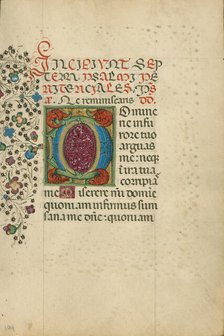 Incipiunt sep
tem psalmi pe
nitenciales. ps
a. Ne reminiscaris dd.
Domine
ne in fu
rore tuo
arguas
me: neq
in ira tua
corripia
me Miserere mei domie
quoniam infirmus sum
sana me dne: quoniam